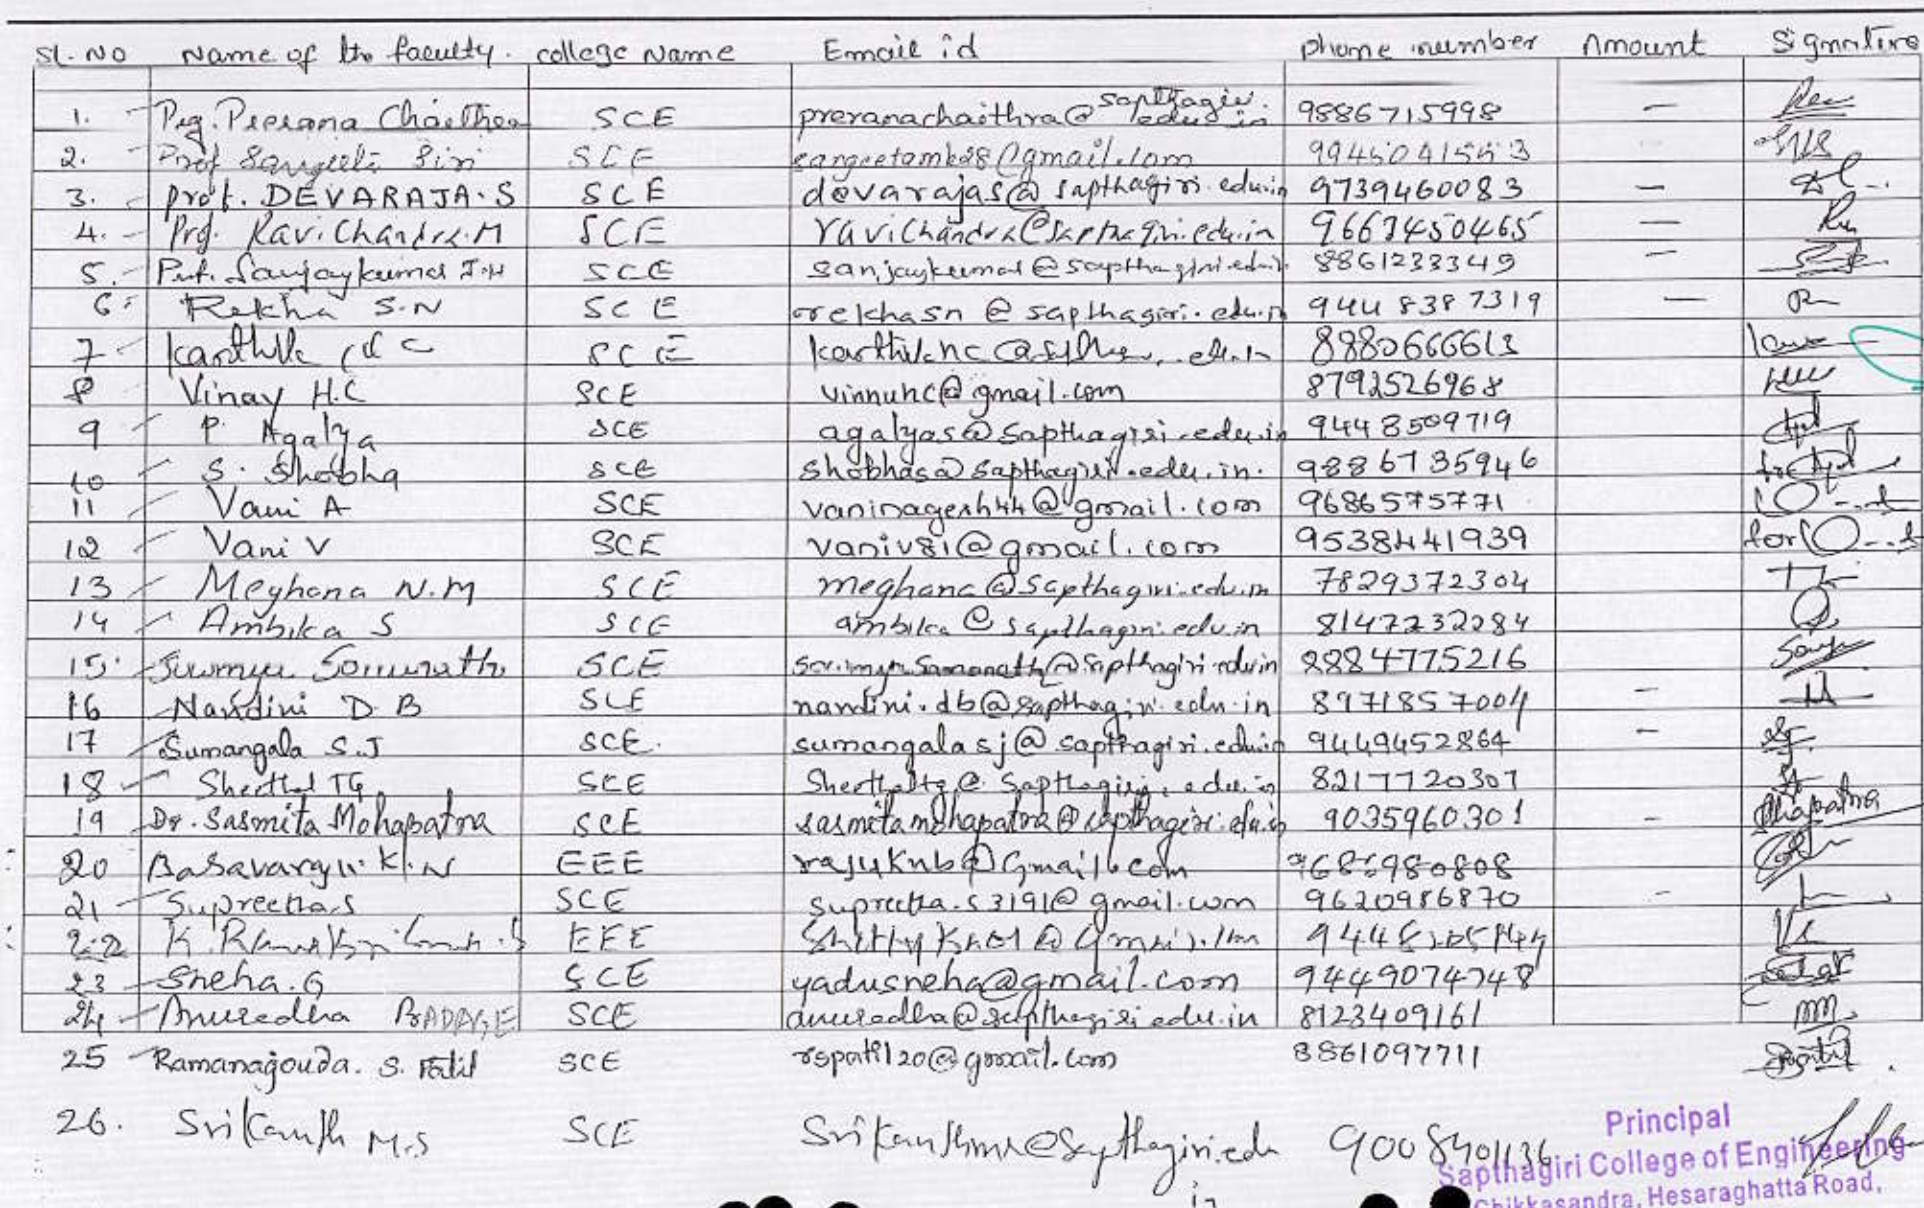 Sl. No Name of the faculty. college Name Email id phone number Amount Signature
1. Prof. Prerana Chaithra SCE preranachaithra@sapthagiri.edu.in 9886715998 -
2. Prof Sangeeta Siri SCE sangeetamb28@gmail.com 9945041553
3. prof. DEVARAJA.S SCE devarajas@sapthagiri.edu.in 9739460083 -
4. Prof. Ravi Chandra.M SCE ravichandra@sapthagiri.edu.in -
5. Prof. Sanjaykumar J.H SCE sanjaykumar@sapthagiri.edu.in 8861233349 -
6. Rekha S.N SCE rekhasn@sapthagiri.edu.in 9448387319 -
7 Karthik SCE 8880666613
8 Vinay H.C SCE vinnuhc@gmail.com 8792526968
9 P. Agalya SCE agalyas@sapthagiri.edu.in 9448509719
10 S. Shobha SCE shobhas@sapthagiri.edu.in. 9886735946 for
11 Vani A SCE vaninagesh44@gmail.com 9686575771
12 Vani V SCE vaniv81@gmail.com 9538441939 for
13 Meghana N.M SCE meghana@sapthagiri.edu.in 7829372304
14 Ambika S SCE ambika@sapthagiri.edu.in 8147232284
15. Sowmya Somanath SCE 8884775216
16 Nandini D B SCE nandini.db@sapthagiri.edu.in 8971857004 -
17 Sumangala S.J SCE. sumangalasj@sapthagiri.edu.in 9449452864 -
18 Sheethal TG SCE Sheethaltg@sapthagiri.edu.in 8217720307
19 Dr. Sasmita Mohapatra SCE sasmitamohapatra@sapthagiri.edu.in 9035960301 - Mhapatra
20 Basavaraju K.N EEE rajuknb@Gmail.com 9686980808
21 Supreetha.S SCE supreetha.s3191@gmail.com 9620986870 -
22 K. EEE
23 Sneha.G SCE yadusneha@gmail.com 9449074748
24 Anuradha BADAGE SCE anuradha@sapthagiri.edu.in 8123409161
25 Ramanagouda. S. Patil SCE rspatil20@gmail.com 8861097711
26. Srikanth M.S SCE Srikanthms@Sapthagiri.edu 9008401136
in
Principal
Sapthagiri College of Engineering
Chikkasandra, Hesaraghatta Road,